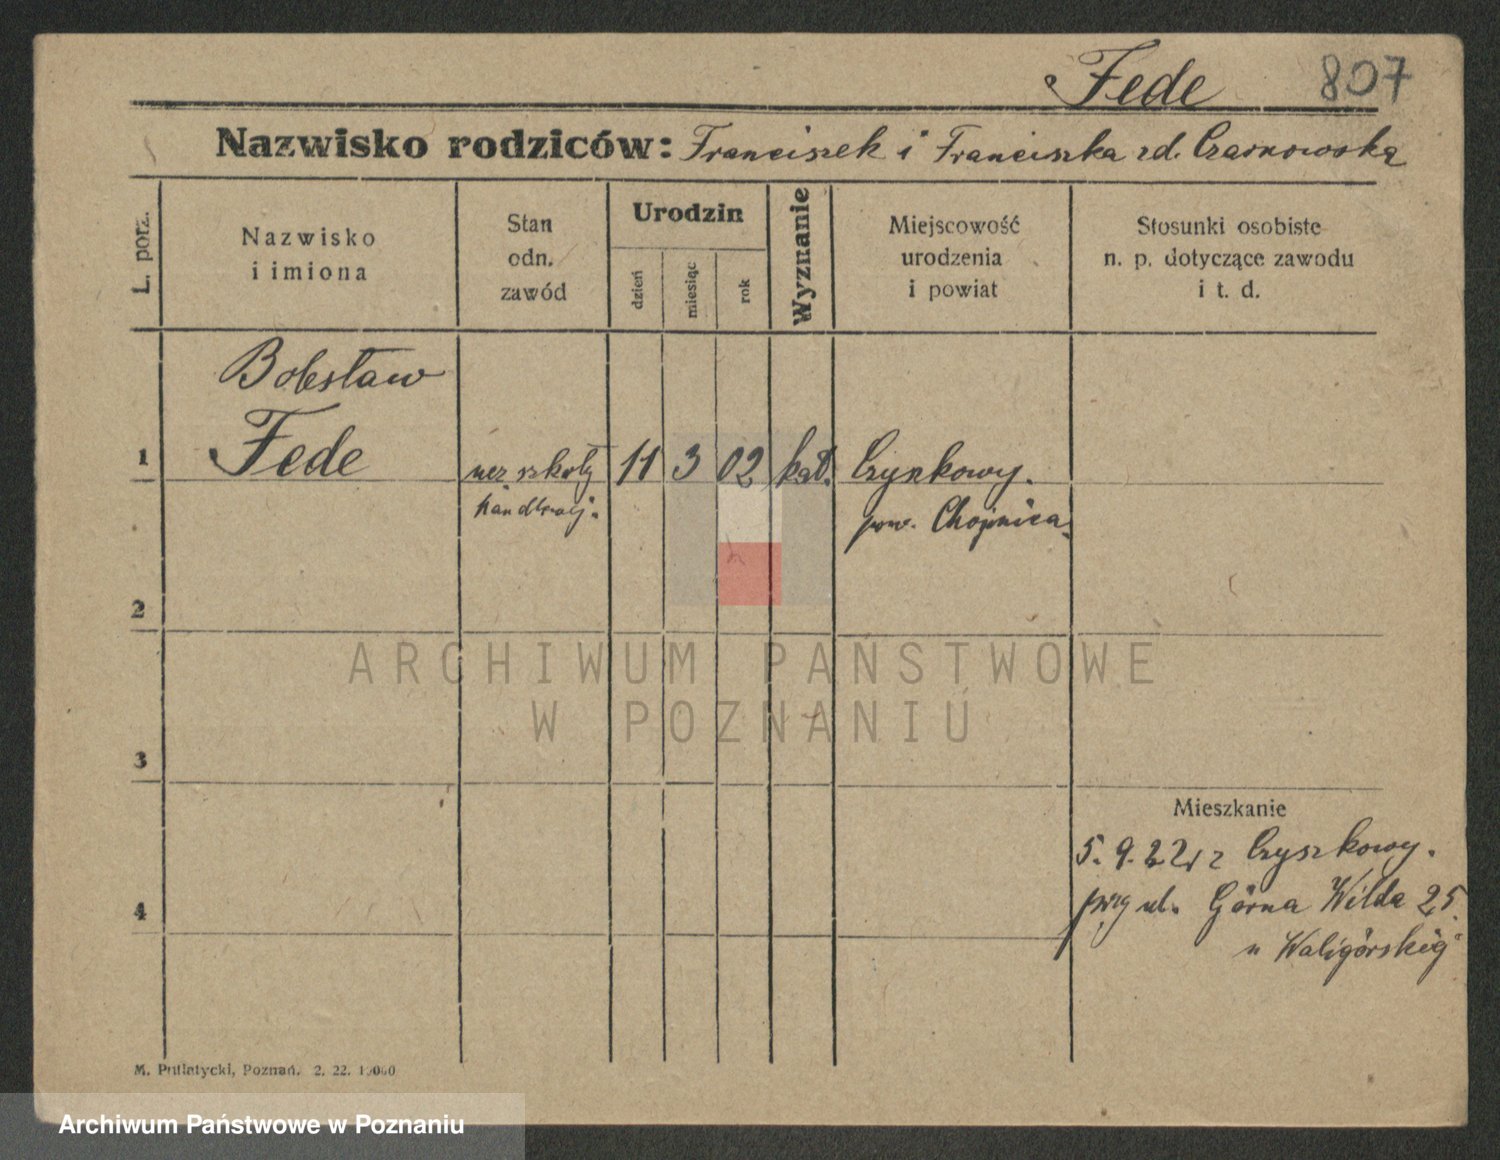 Fede 807
Nazwisko rodziców: Franciszek i Franciszka zd. Czarnowska
L. porz.
Nazwisko
i imiona
Stan
odn.
zawód
Urodzin
dzień
miesiąc
rok
Wyznanie
Miejscowość
urodzenia
i powiat
Stosunki osobiste
n. p. dotyczące zawodu
i t. d.
Bolesław
1 Fede ucz szkoły 11 3 02 kat. Czyskowy.
handlowej. pow. Chojnica.
2
ARCHIWUM PAŃSTWOWE
W POZNANIU
3
Mieszkanie
5. 9. 22r z Czyszkowy.
4 przy ul. Górna Wilda 25.
u Waligórskiej
M. Putiatycki, Poznań. 2. 22. 10000
Archiwum Państwowe w Poznaniu